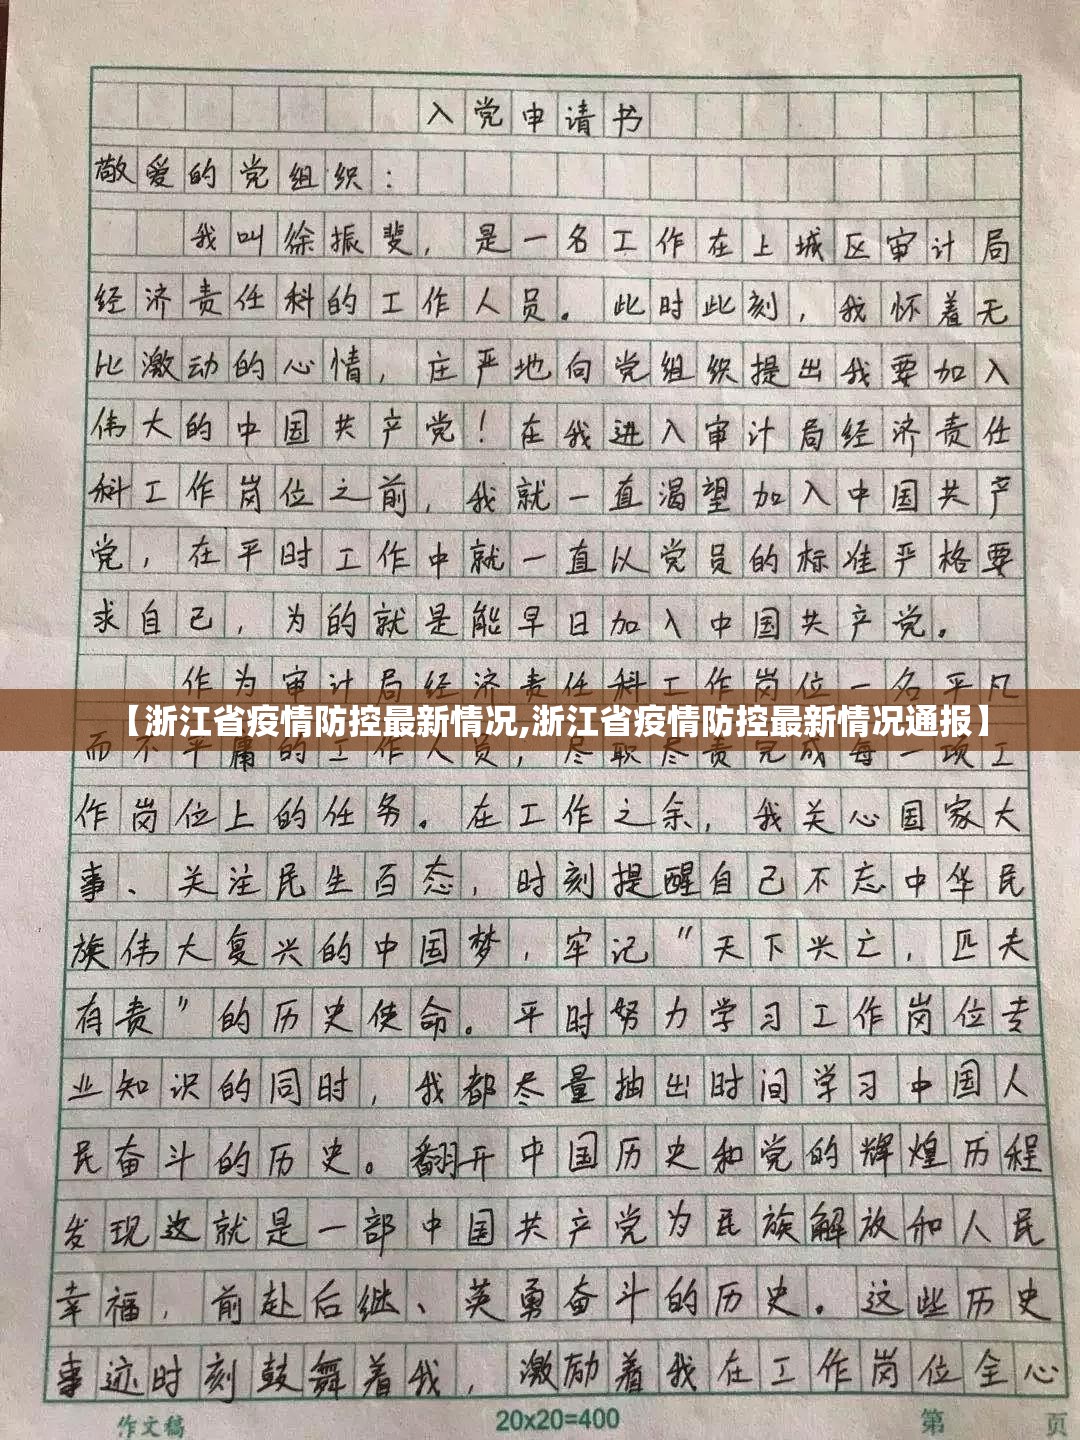 入党申请书
敬爱的党组织：
我叫徐振斐，是一名工作在上城区审计局
经济责任科的工作人员。此时此刻，我怀着无
比激动的心情，庄严地向党组织提出我要加入
伟大的中国共产党！在我进入审计局经济责任
科工作岗位之前，我就一直渴望加入中国共产
党，在平时工作中就一直以党员的标准严格要
求自己，为的就是能早日加入中国共产党。
作为审计局经济责任科工作岗位一名平凡
【浙江省疫情防控最新情况,浙江省疫情防控最新情况通报】
而不平庸的工作人员，尽职尽责完成每一项工
作岗位上的任务。在工作之余，我关心国家大
事、关注民生百态，时刻提醒自己不忘中华民
族伟大复兴的中国梦，牢记“天下兴亡，匹夫
有责”的历史使命。平时努力学习工作岗位专
业知识的同时，我都尽量抽出时间学习中国人
民奋斗的历史。翻开中国历史和党的辉煌历程
发现这就是一部中国共产党为民族解放和人民
幸福，前赴后继、英勇奋斗的历史。这些历史
事迹时刻鼓舞着我，激励着我在工作岗位全心
作文稿
20x20=400
第 页